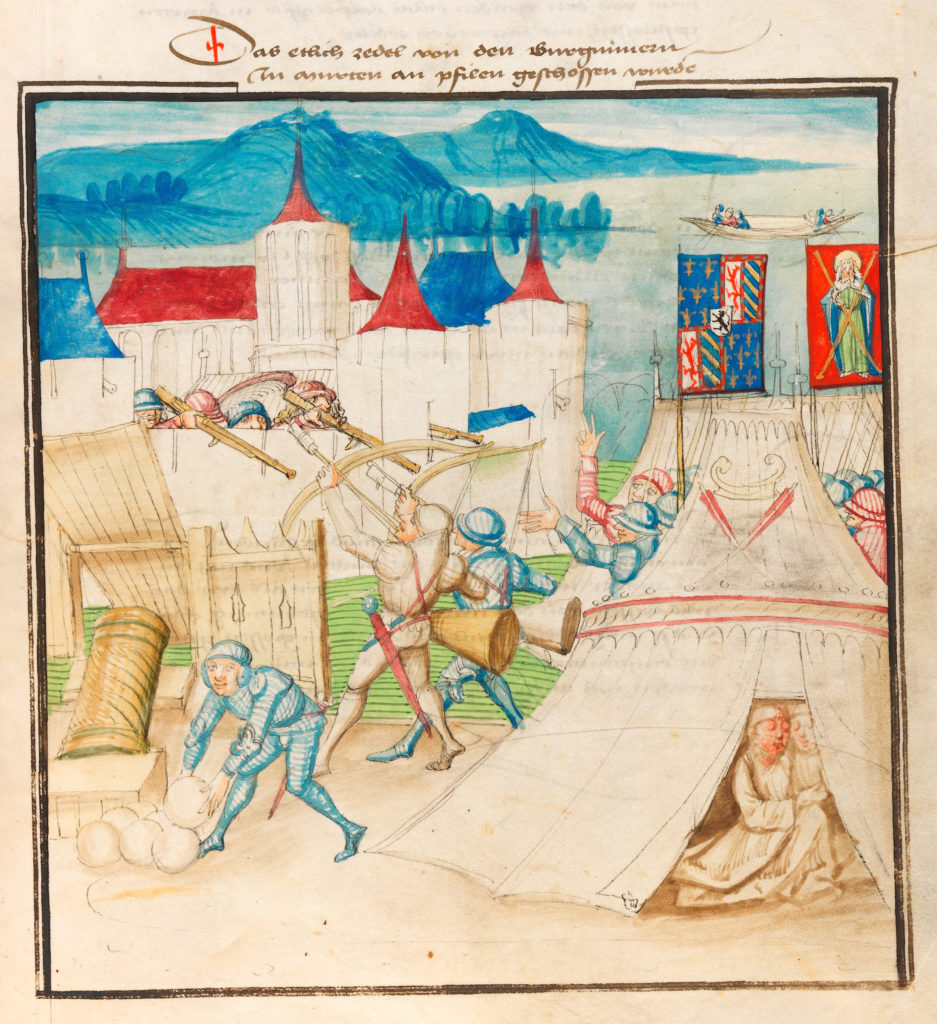 Das etlich zedel von den Burgunnern
In murten an pfilen geschossen wurde